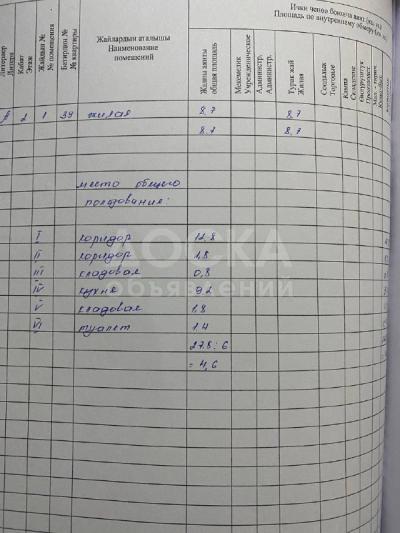 Ички ченов боюнча аянт (кв. м)
Площадь по внутреннему обмеру (кв. м)
Литер
Кабат
Этаж
Жайдын №
№ помещения
Батирдин №
№ квартиры
Жайлардын аталышы
Наименование
помещений
Жалпы аянты
общая площадь
Мекемелик
Учрежденческое
Администр.
Администр.
Турак жай
Жилая
Соодалык
Торговые
Кампа
Складские
2 1 39 жилая 8,7 8,7
8.7 8,7
место общего
пользования:
I коридор 12,8
II коридор 1,8
III кладовая 0,8
IV кухня 9.2
V кладовая 1.8
VI туалет 1.4
27.8 : 6
= 4,6
ДОСКА
объявлений